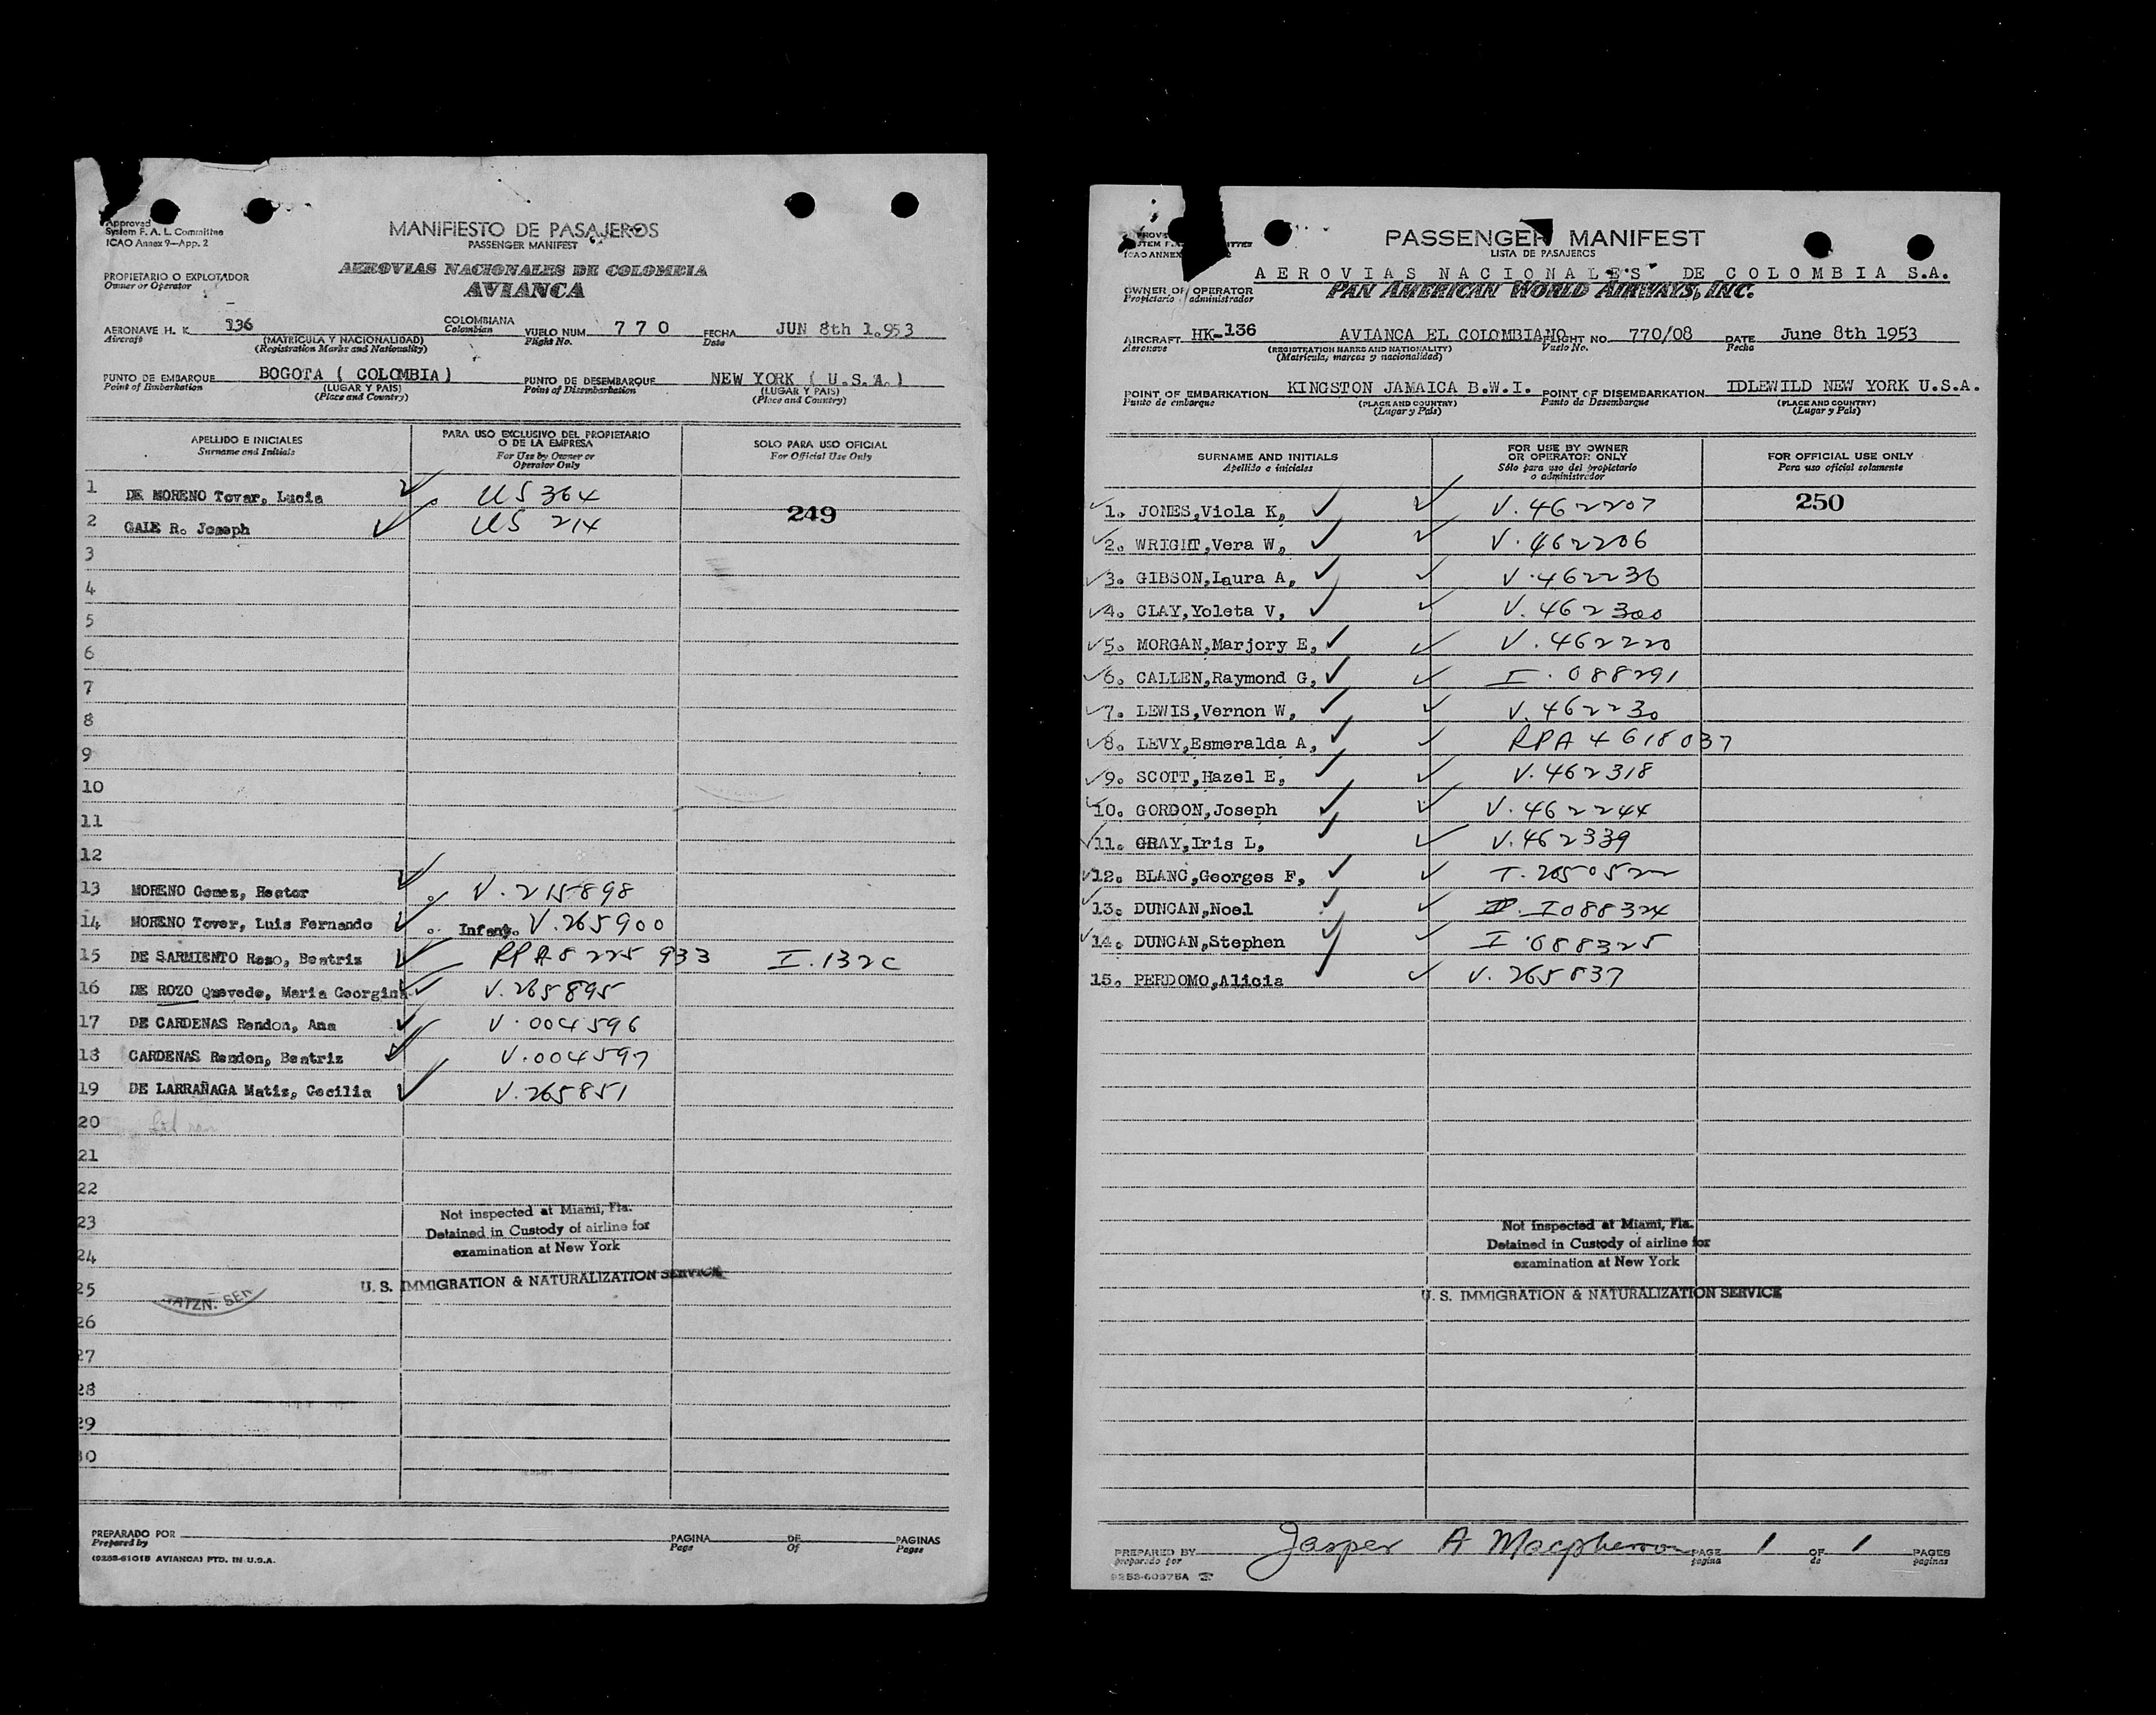 Approved
System F. A. L. Committee
ICAO Annex 9—App. 2
MANIFIESTO DE PASAJEROS
PASSENGER MANIFEST
PROPIETARIO O EXPLOTADOR
Owner or Operator
AEROVIAS NACIONALES DE COLOMBIA
AVIANCA
AERONAVE H. K. 136 COLOMBIANA VUELO NUM. 7 7 0 FECHA JUN 8th 1.953
Aircraft (MATRICULA Y NACIONALIDAD) Colombian Flight No. Date
(Registration Marks and Nationality)
PUNTO DE EMBARQUE BOGOTA ( COLOMBIA ) PUNTO DE DESEMBARQUE NEW YORK ( U.S.A.)
Point of Embarkation (LUGAR Y PAIS) Point of Disembarkation (LUGAR Y PAIS)
(Place and Country) (Place and Country)
APELLIDO E INICIALES
Surname and Initials
PARA USO EXCLUSIVO DEL PROPIETARIO
O DE LA EMPRESA
For Use by Owner or
Operator Only
SOLO PARA USO OFICIAL
For Official Use Only
1 DE MORENO Tovar, Lucia US 364
249
2 GALE R. Joseph US 214
3
4
5
6
7
8
9
10
11
12
13 MORENO Gomez, Hector V. 215898
14 MORENO Tover, Luis Fernando Infant. V. 265900
15 DE SARMIENTO Rozo, Beatriz RPA 8225 933 I. 132C
16 DE ROZO Quevedo, Maria Georgina V. 265895
17 DE CARDENAS Rendon, Ana V. 004596
18 CARDENAS Rendon, Beatriz V. 004597
19 DE LARRAÑAGA Matiz, Cecilia V. 265851
20
21
22
23
24
25
26
27
28
29
30
Not inspected at Miami, Fla.
Detained in Custody of airline for
examination at New York
U. S. IMMIGRATION & NATURALIZATION SERVICE
PREPARADO POR PAGINA DE PAGINAS
Prepared by Page Of Pages
(9253-6101B AVIANCA) PTD. IN U.S.A.
PASSENGER MANIFEST
LISTA DE PASAJEROS
ICAO ANNEX
AEROVIAS NACIONALES DE COLOMBIA S.A.
OWNER OR OPERATOR PAN AMERICAN WORLD AIRWAYS, INC.
Propietario administrador
AIRCRAFT HK-136 AVIANCA EL COLOMBIANO FLIGHT NO. 770/08 DATE June 8th 1953
Aeronave (REGISTRATION MARKS AND NATIONALITY) Vuelo No. Fecha
(Matricula, marcas y nacionalidad)
POINT OF EMBARKATION KINGSTON JAMAICA B.W.I. POINT OF DISEMBARKATION IDLEWILD NEW YORK U.S.A.
Punto de embarque (PLACE AND COUNTRY) Punto de Desembarque (PLACE AND COUNTRY)
(Lugar y País) (Lugar y País)
SURNAME AND INITIALS
Apellido e iniciales
FOR USE BY OWNER
OR OPERATOR ONLY
Sólo para uso del propietario
o administrador
FOR OFFICIAL USE ONLY
Para uso oficial solamente
1. JONES,Viola K, V. 462207 250
2. WRIGHT,Vera W, V. 462206
3. GIBSON,Laura A, V. 462236
4. CLAY,Yoleta V, V. 462300
5. MORGAN,Marjory E, V. 462220
6. CALLEN,Raymond G, I. 088291
7. LEWIS,Vernon W, V. 462230
8. LEVY,Esmeralda A, RPA 4618037
9. SCOTT,Hazel E, V. 462318
10. GORDON,Joseph V. 462244
11. GRAY,Iris L, V. 462339
12. BLANC,Georges F, T. 2650522
13. DUNCAN,Noel I088324
14. DUNCAN,Stephen I 088325
15. PERDOMO,Alicia V. 265837
Not inspected at Miami, Fla.
Detained in Custody of airline for
examination at New York
U. S. IMMIGRATION & NATURALIZATION SERVICE
PREPARED BY Jasper A Macpherson PAGE 1 OF 1 PAGES
preparado por pagina de paginas
9253-60975A